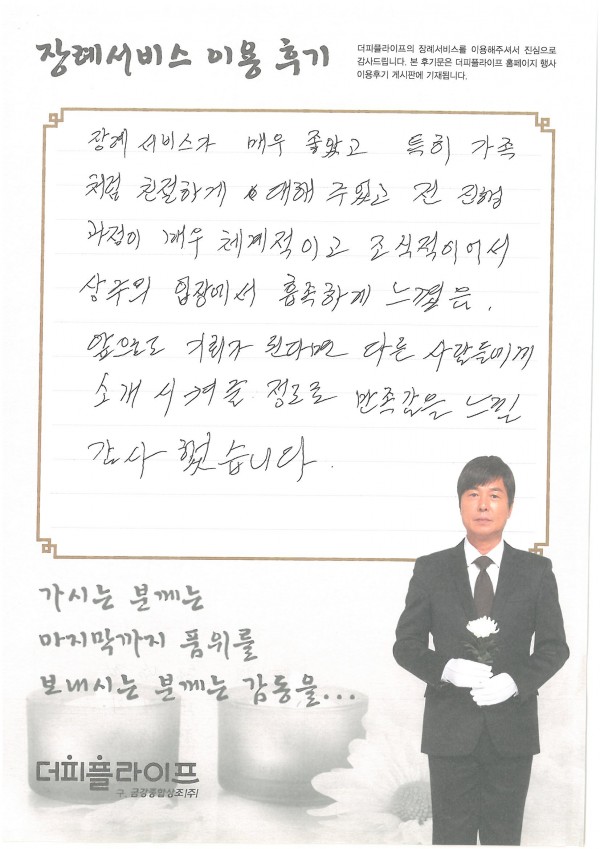 장례서비스 이용 후기
더피플라이프의 장례서비스를 이용해주셔서 진심으로
감사드립니다. 본 후기문은 더피플라이프 홈페이지 행사
이용후기 게시판에 기재됩니다.
장례 서비스가 매우 좋았고 특히 가족
처럼 친절하게 대해 주었고 전 진행
과정이 매우 체계적이고 조직적이어서
상주의 입장에서 흡족하게 느꼈음.
앞으로도 기회가 된다면 다른 사람들에게
소개 시켜줄 정도로 만족감을 느낌
감사 했습니다.
가시는 분께는
마지막까지 품위를
보내시는 분께는 감동을...
더피플라이프
구. 금강종합상조(주)